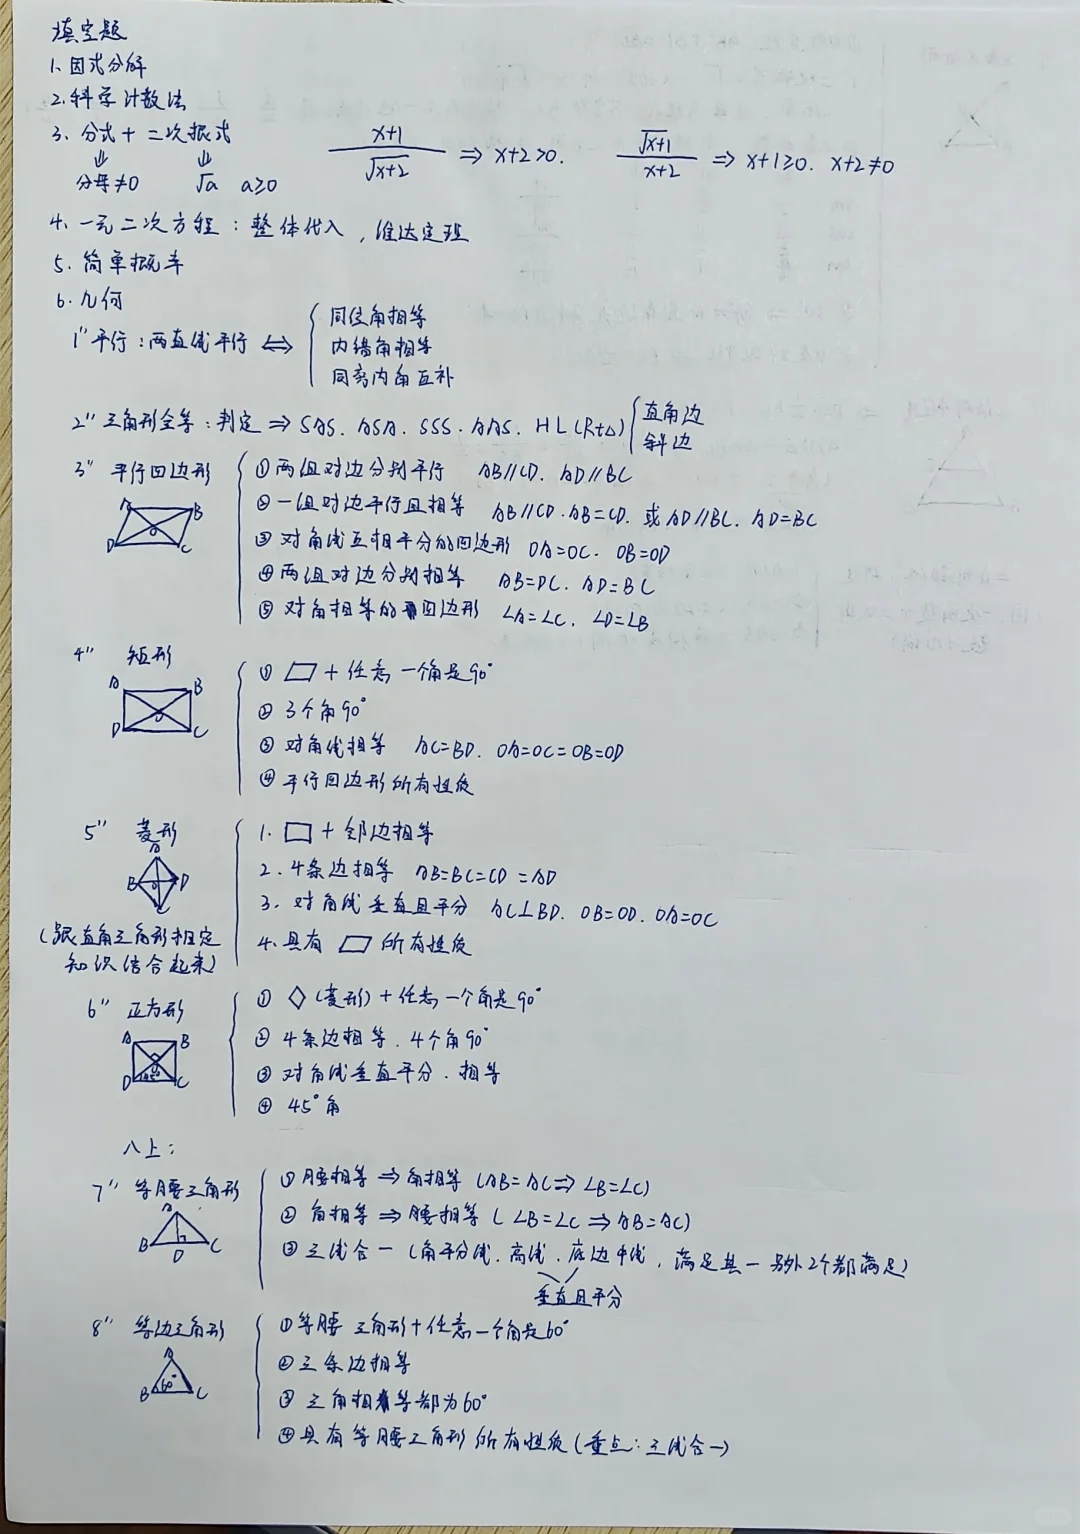 填空题
1. 因式分解
2. 科学计数法
3. 分式 + 二次根式
⇓ ⇓
分母≠0 √a a≥0
x+1/√(x+2) ⇒ x+2>0. √(x+1)/(x+2) ⇒ x+1≥0. x+2≠0
4. 一元二次方程：整体代入，韦达定理
5. 简单概率
6. 几何
1" 平行：两直线平行 ⇔ { 同位角相等
内错角相等
同旁内角互补
2" 三角形全等：判定 ⇒ SAS. ASA. SSS. AAS. HL(Rt△) { 直角边
斜边
3" 平行四边形
A B O D C
① 两组对边分别平行 AB//CD. AD//BC
② 一组对边平行且相等 AB//CD. AB=CD. 或 AD//BC. AD=BC
③ 对角线互相平分的四边形 OA=OC. OB=OD
④ 两组对边分别相等 AB=DC. AD=BC
⑤ 对角相等的四边形 ∠A=∠C. ∠D=∠B
4" 矩形
A B O D C
① ▱ + 任意一个角是90°
② 3个角90°
③ 对角线相等 AC=BD. OA=OC=OB=OD
④ 平行四边形所有性质
5" 菱形
A B O D C
(跟直角三角形相定
知识结合起来)
1. ▱ + 邻边相等
2. 4条边相等 AB=BC=CD=AD
3. 对角线垂直且平分 AC⊥BD. OB=OD. OA=OC
4. 具有 ▱ 所有性质
6" 正方形
A B O D 45° C
① ◇(菱形) + 任意一个角是90°
② 4条边相等. 4个角90°
③ 对角线垂直平分. 相等
④ 45°角
八上：
7" 等腰三角形
A B D C
① 腰相等 ⇒ 角相等 (AB=AC ⇒ ∠B=∠C)
② 角相等 ⇒ 腰相等 (∠B=∠C ⇒ AB=AC)
③ 三线合一 (角平分线. 高线. 底边中线，满足其一 另外2个都满足)
垂直且平分
8" 等边三角形
A B 60° C
① 等腰三角形+任意一个角是60°
② 三条边相等
③ 三角相等都为60°
④ 具有等腰三角形所有性质 (重点：三线合一)